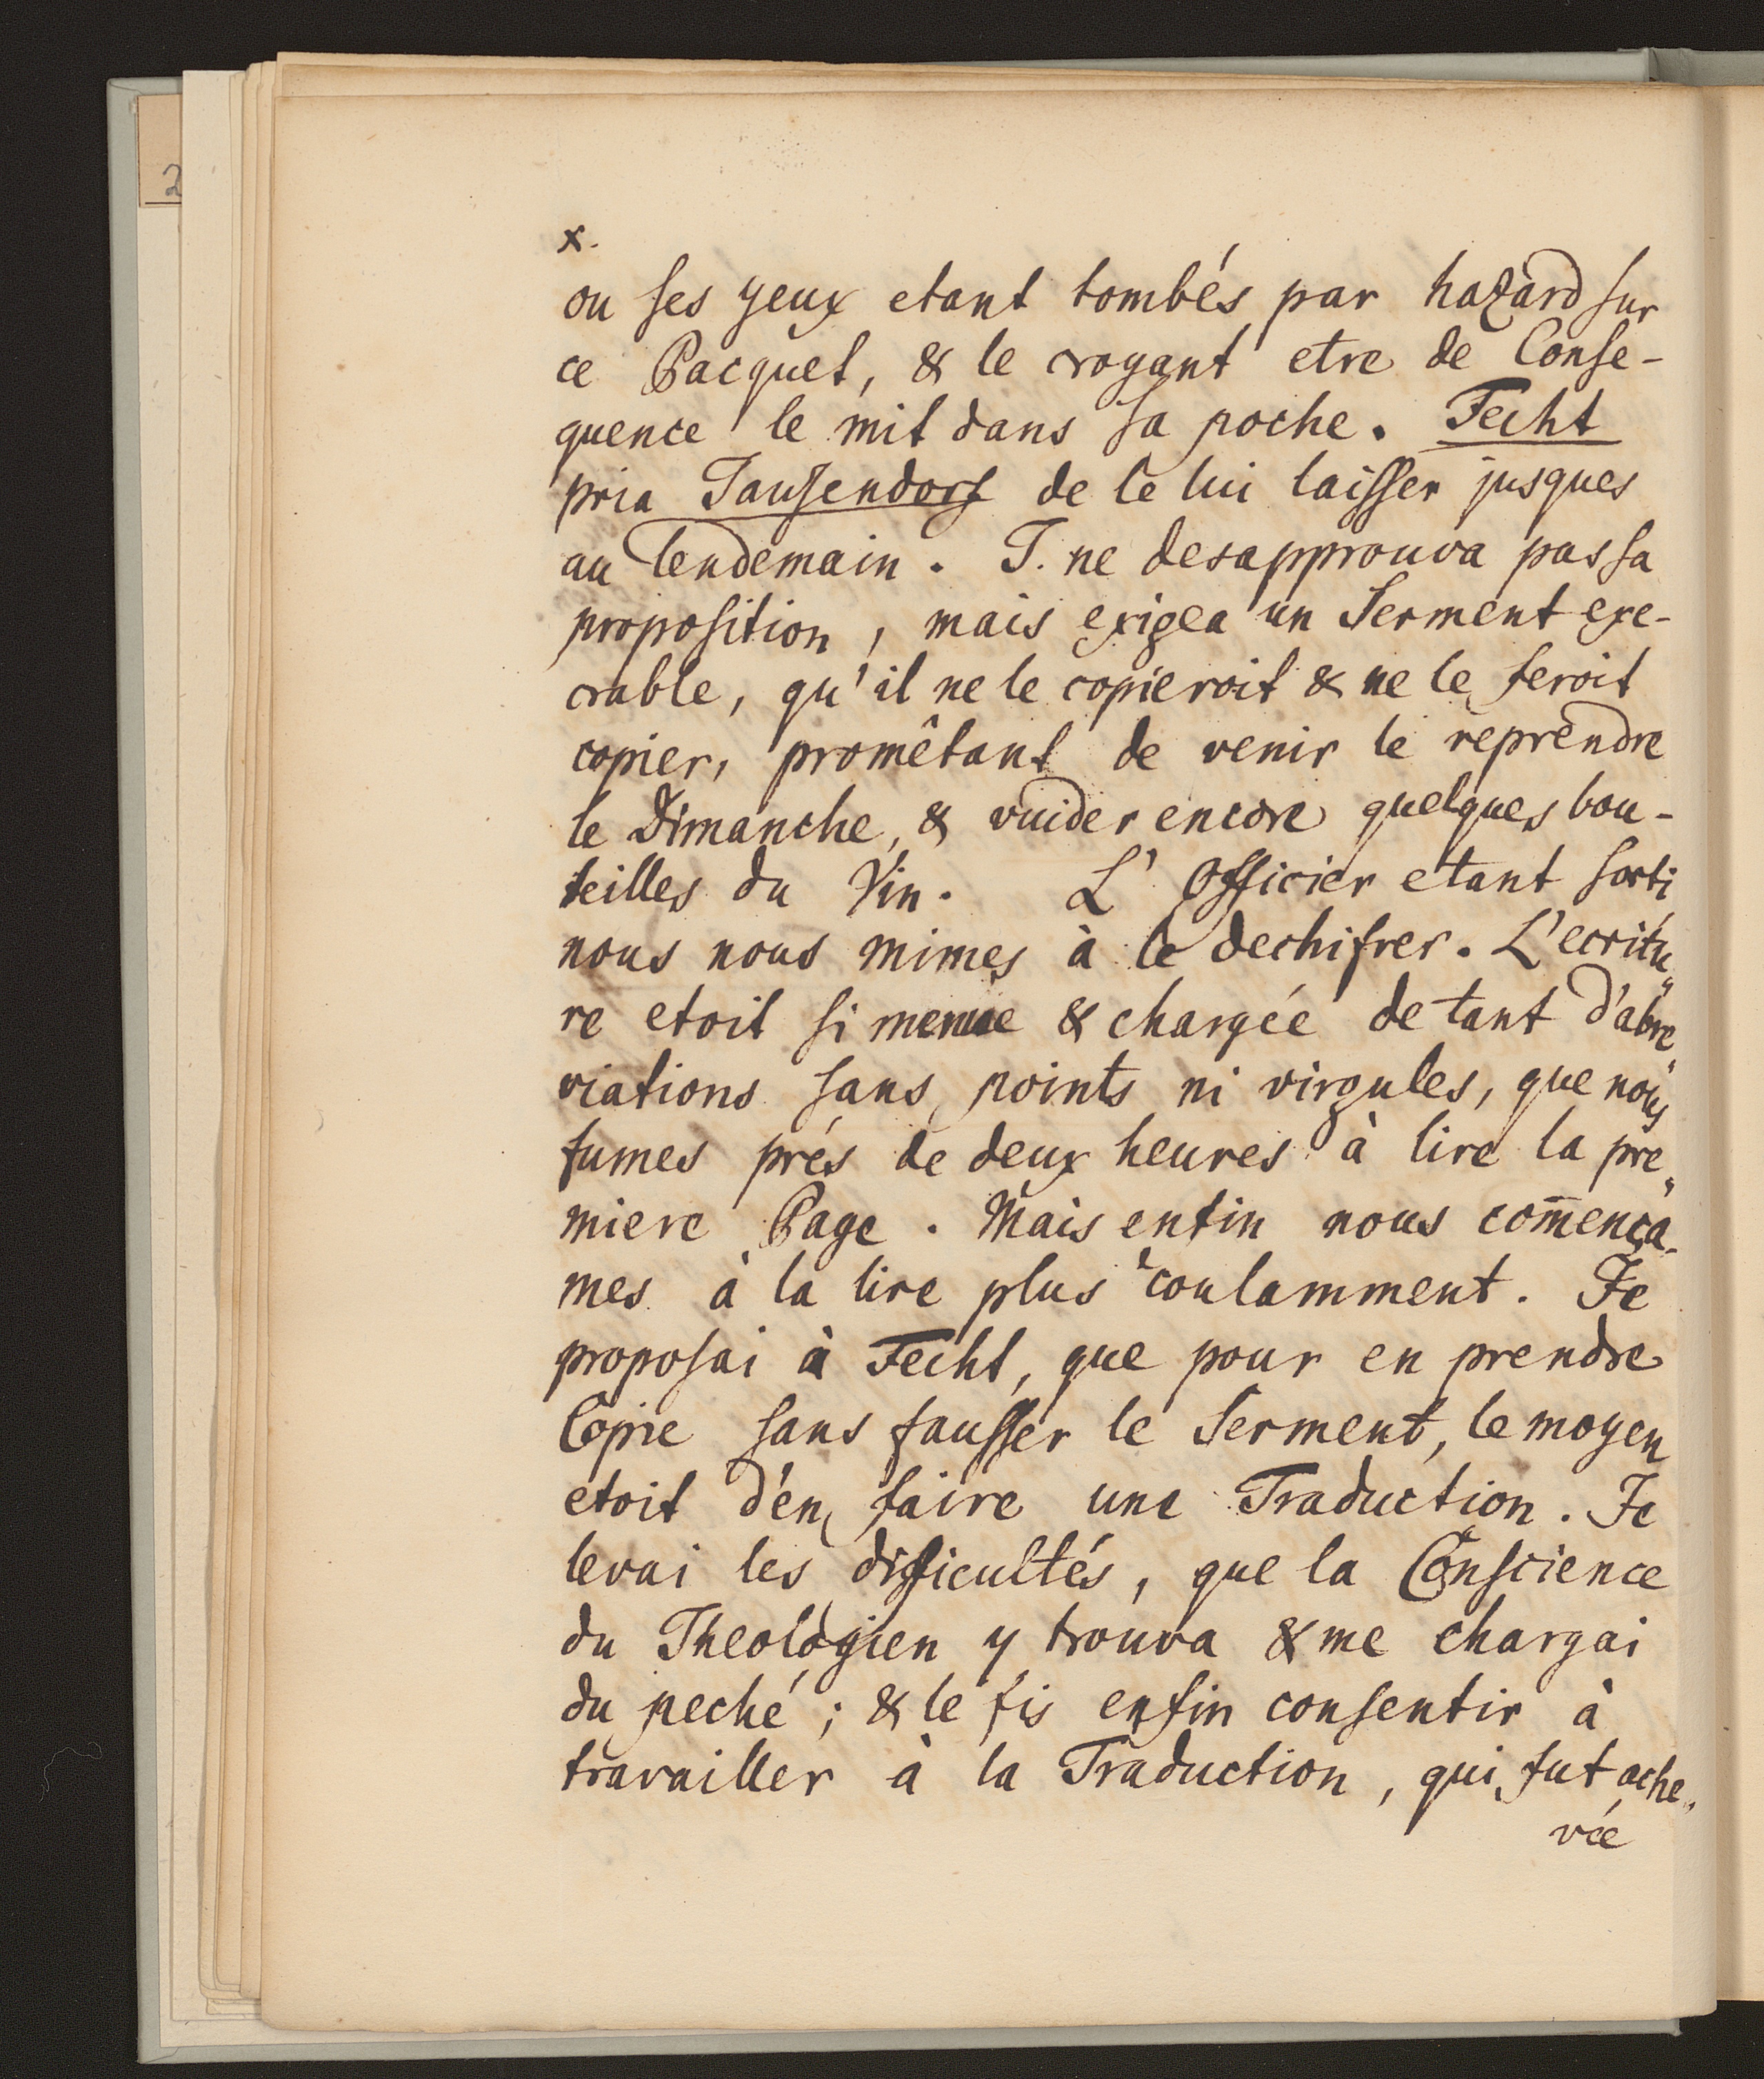 2
x.
ou ses yeux etant tombés par hazard sur
ce Pacquet, & le croyant etre de Conse-
quence le mit dans sa poche. Fecht
pria Tausendorf de le lui laisser jusques
au lendemain. T. ne desapprouva pas sa
proposition, mais exigea un Serment exe-
crable, qu'il ne le copieroit & ne le feroit
copier, promêtant de venir le reprendre
le Dimanche, & vuider encore quelques bou-
teilles du Vin. L'Officier etant sorti
nous nous mimes à le dechifrer. L'ecritu„
re etoit si menue & chargée de tant d'abre„
viations sans points ni virgules, que nous
fumes prés de deux heures à lire la pre„
miere Page. Mais enfin nous com̄ença-
mes à la lire plus coulamment. Je
proposai à Fecht, que pour en prendre
Copie sans fausser le Serment, le moyen
etoit d'en faire une Traduction. Je
levai les difficultés, que la Conscience
du Theologien y trouva & me chargai
du peché; & le fis enfin consentir à
travailler à la Traduction, qui fut ache„
vée